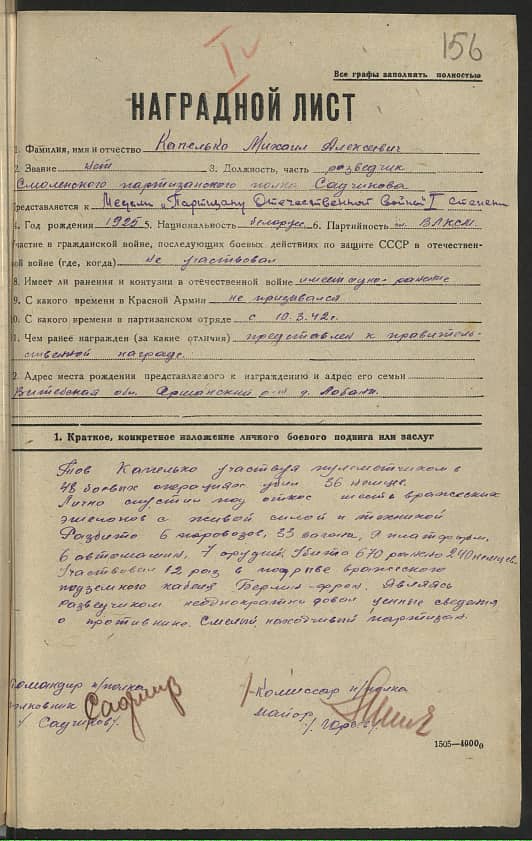 156
Все графы заполнять полностью
НАГРАДНОЙ ЛИСТ
1. Фамилия, имя и отчество Капелько Михаил Алексеевич
2. Звание нет 3. Должность, часть разведчик
Смоленского партизанского полка Садчикова
Представляется к Медали „Партизану Отечественной Войны" I степени
4. Год рождения 1925 5. Национальность белорус 6. Партийность чл. ВЛКСМ
Участие в гражданской войне, последующих боевых действиях по защите СССР в отечествен-
ной войне (где, когда) не участвовал
8. Имеет ли ранения и контузии в отечественной войне имеет одно ранение
9. С какого времени в Красной Армии не призывался
10. С какого времени в партизанском отряде с 10.3.42г.
11. Чем ранее награжден (за какие отличия) представлен к правитель-
ственной награде.
12. Адрес места рождения представляемого к награждению и адрес его семьи
Витебская обл. Оршанский р-н д. Лобаны
1. Краткое, конкретное изложение личного боевого подвига или заслуг
Тов Капелько участвуя пулеметчиком в
48 боевых операциях убил 36 немцев.
Лично спустил под откос шесть вражеских
эшелонов с живой силой и техникой
Разбито 6 паровозов, 33 вагона, 9 платформ,
6 автомашин, 7 орудий. Убито 670 ранено 240 немцев.
Участвовал 12 раз в подрыве вражеского
подземного кабеля Берлин-фронт. Являясь
разведчиком неоднократно давал ценные сведения
о противнике. Смелый, находчивый партизан.
Командир п/полка
полковник
/Садчиков/.
Комиссар п/полка
майор
1505—4900